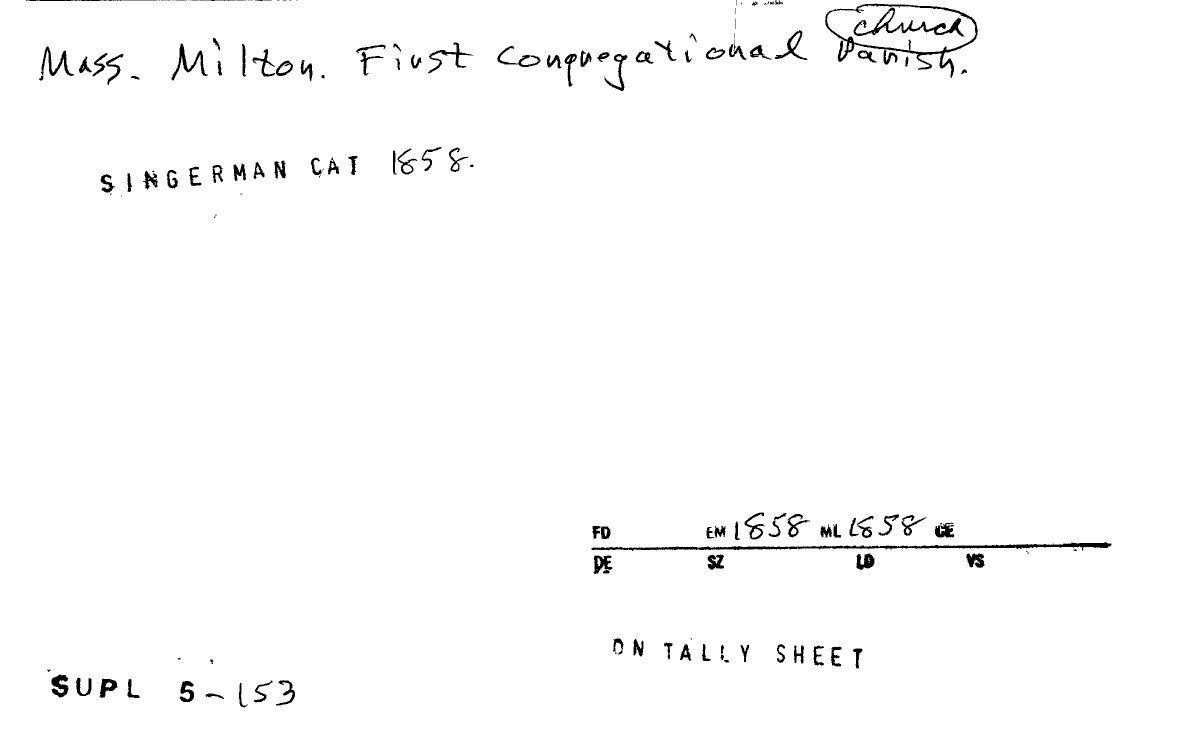 church
Mass. Milton. First Congregational Parish.
SINGERMAN CAT 1858.
FD EM 1858 ML 1858 CE
DE SZ LD VS
ON TALLY SHEET
SUPL S-153